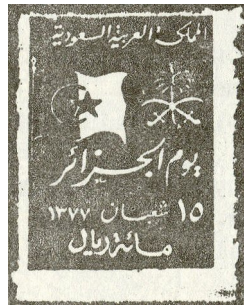 المملكة العربية السعودية
يوم الجزائر
١٥ شعبان ١٣٧٧
مائة ريال